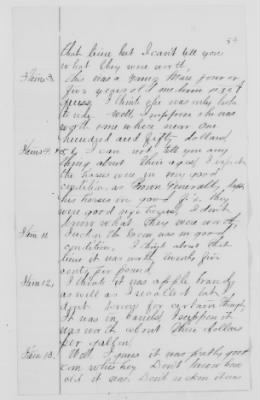 that time but I can't tell you
what they were worth.
Item 3. She was a young Mare four or
five years old medium size I
guess, I think she was only bro't
to ride. Well I suppose she was
worth some where near One
hundred and fifty dollars
Item 4. I can not tell you any
thing about their ages. I expect
the horses were in very good
condition as Brown Generally kept
his horses in good fix they
were good size horses. I don't
know what they were worth
Item 11. Bacon the bacon was in good
condition. I think about that
time it was worth twenty five
cents per pound
Item 12. I think it was apple brandy
as well as I recollect but
don't know for certain though,
It was in barrels I suppose it
was worth about three dollars
per gallon.
Item 13. Well I guess it was pretty good
corn whiskey. Don't know how
old it was. Don't reckon it was